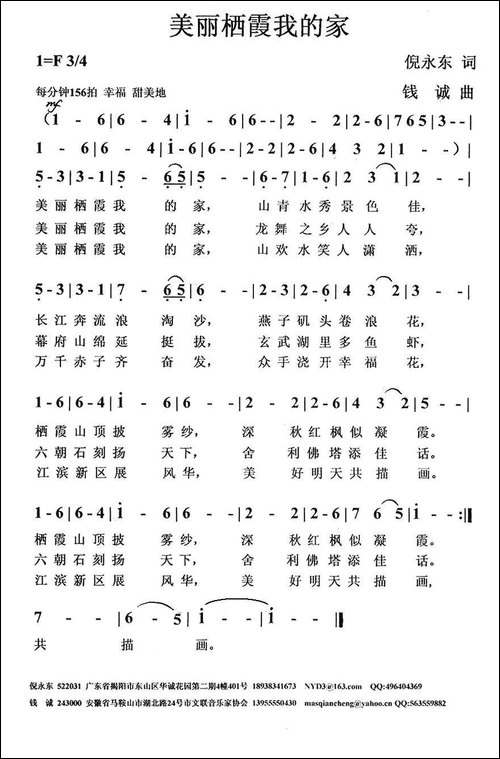 美丽栖霞我的家
1=F 3/4
倪永东 词
每分钟156拍 幸福 甜美地
钱 诚 曲
mf
（1 - 6|6 - 4|i - 6|6 - -|2 - 2|2 - 6|7 6 5|3 - -|
1 - 6|6 - 4|i - 6|6 - -|2 - 2|2 - 6|4 3 2|1 - -）|
5 - 3|3 - 1|5 - 6 5|5 - -|6 - 7|6 - 1|6 - 2|3 - 1|2 - -|
美 丽 栖 霞 我 的 家， 山 青 水 秀 景 色 佳，
美 丽 栖 霞 我 的 家， 龙 舞 之 乡 人 人 夸，
美 丽 栖 霞 我 的 家， 山 欢 水 笑 人 潇 洒，
5 - 3|3 - 1|7 - 6 5|6 - -|2 - 3|2 - 6|4 3 2|1 - -|
长 江 奔 流 浪 淘 沙， 燕 子 矶 头 卷 浪 花，
幕 府 山 绵 延 挺 拔， 玄 武 湖 里 多 鱼 虾，
万 千 赤 子 齐 奋 发， 众 手 浇 开 幸 福 花，
1 - 6|6 - 4|i - 6|6 - -|2 - 2|2 - 6|4 3 2|5 - -|
栖 霞 山 顶 披 雾 纱， 深 秋 红 枫 似 凝 霞。
六 朝 石 刻 扬 天 下， 舍 利 佛 塔 添 佳 话。
江 滨 新 区 展 风 华， 美 好 明 天 共 描 画。
1 - 6|6 - 4|i - 6|6 - -|2 - 2|2 - 6|7 6 5|i - -:||
栖 霞 山 顶 披 雾 纱， 深 秋 红 枫 似 凝 霞。
六 朝 石 刻 扬 天 下， 舍 利 佛 塔 添 佳 话。
江 滨 新 区 展 风 华， 美 好 明 天 共 描 画，
7 - -|6 - 5|i - -|i - -||
共 描 画。
倪永东 522031 广东省揭阳市东山区华诚花园第二期4幢401号 18938341673 NYD3@163.com QQ:496404369
钱 诚 243000 安徽省马鞍山市湖北路24号市文联音乐家协会 13955550430 masqiancheng@yahoo.cn QQ:563559882